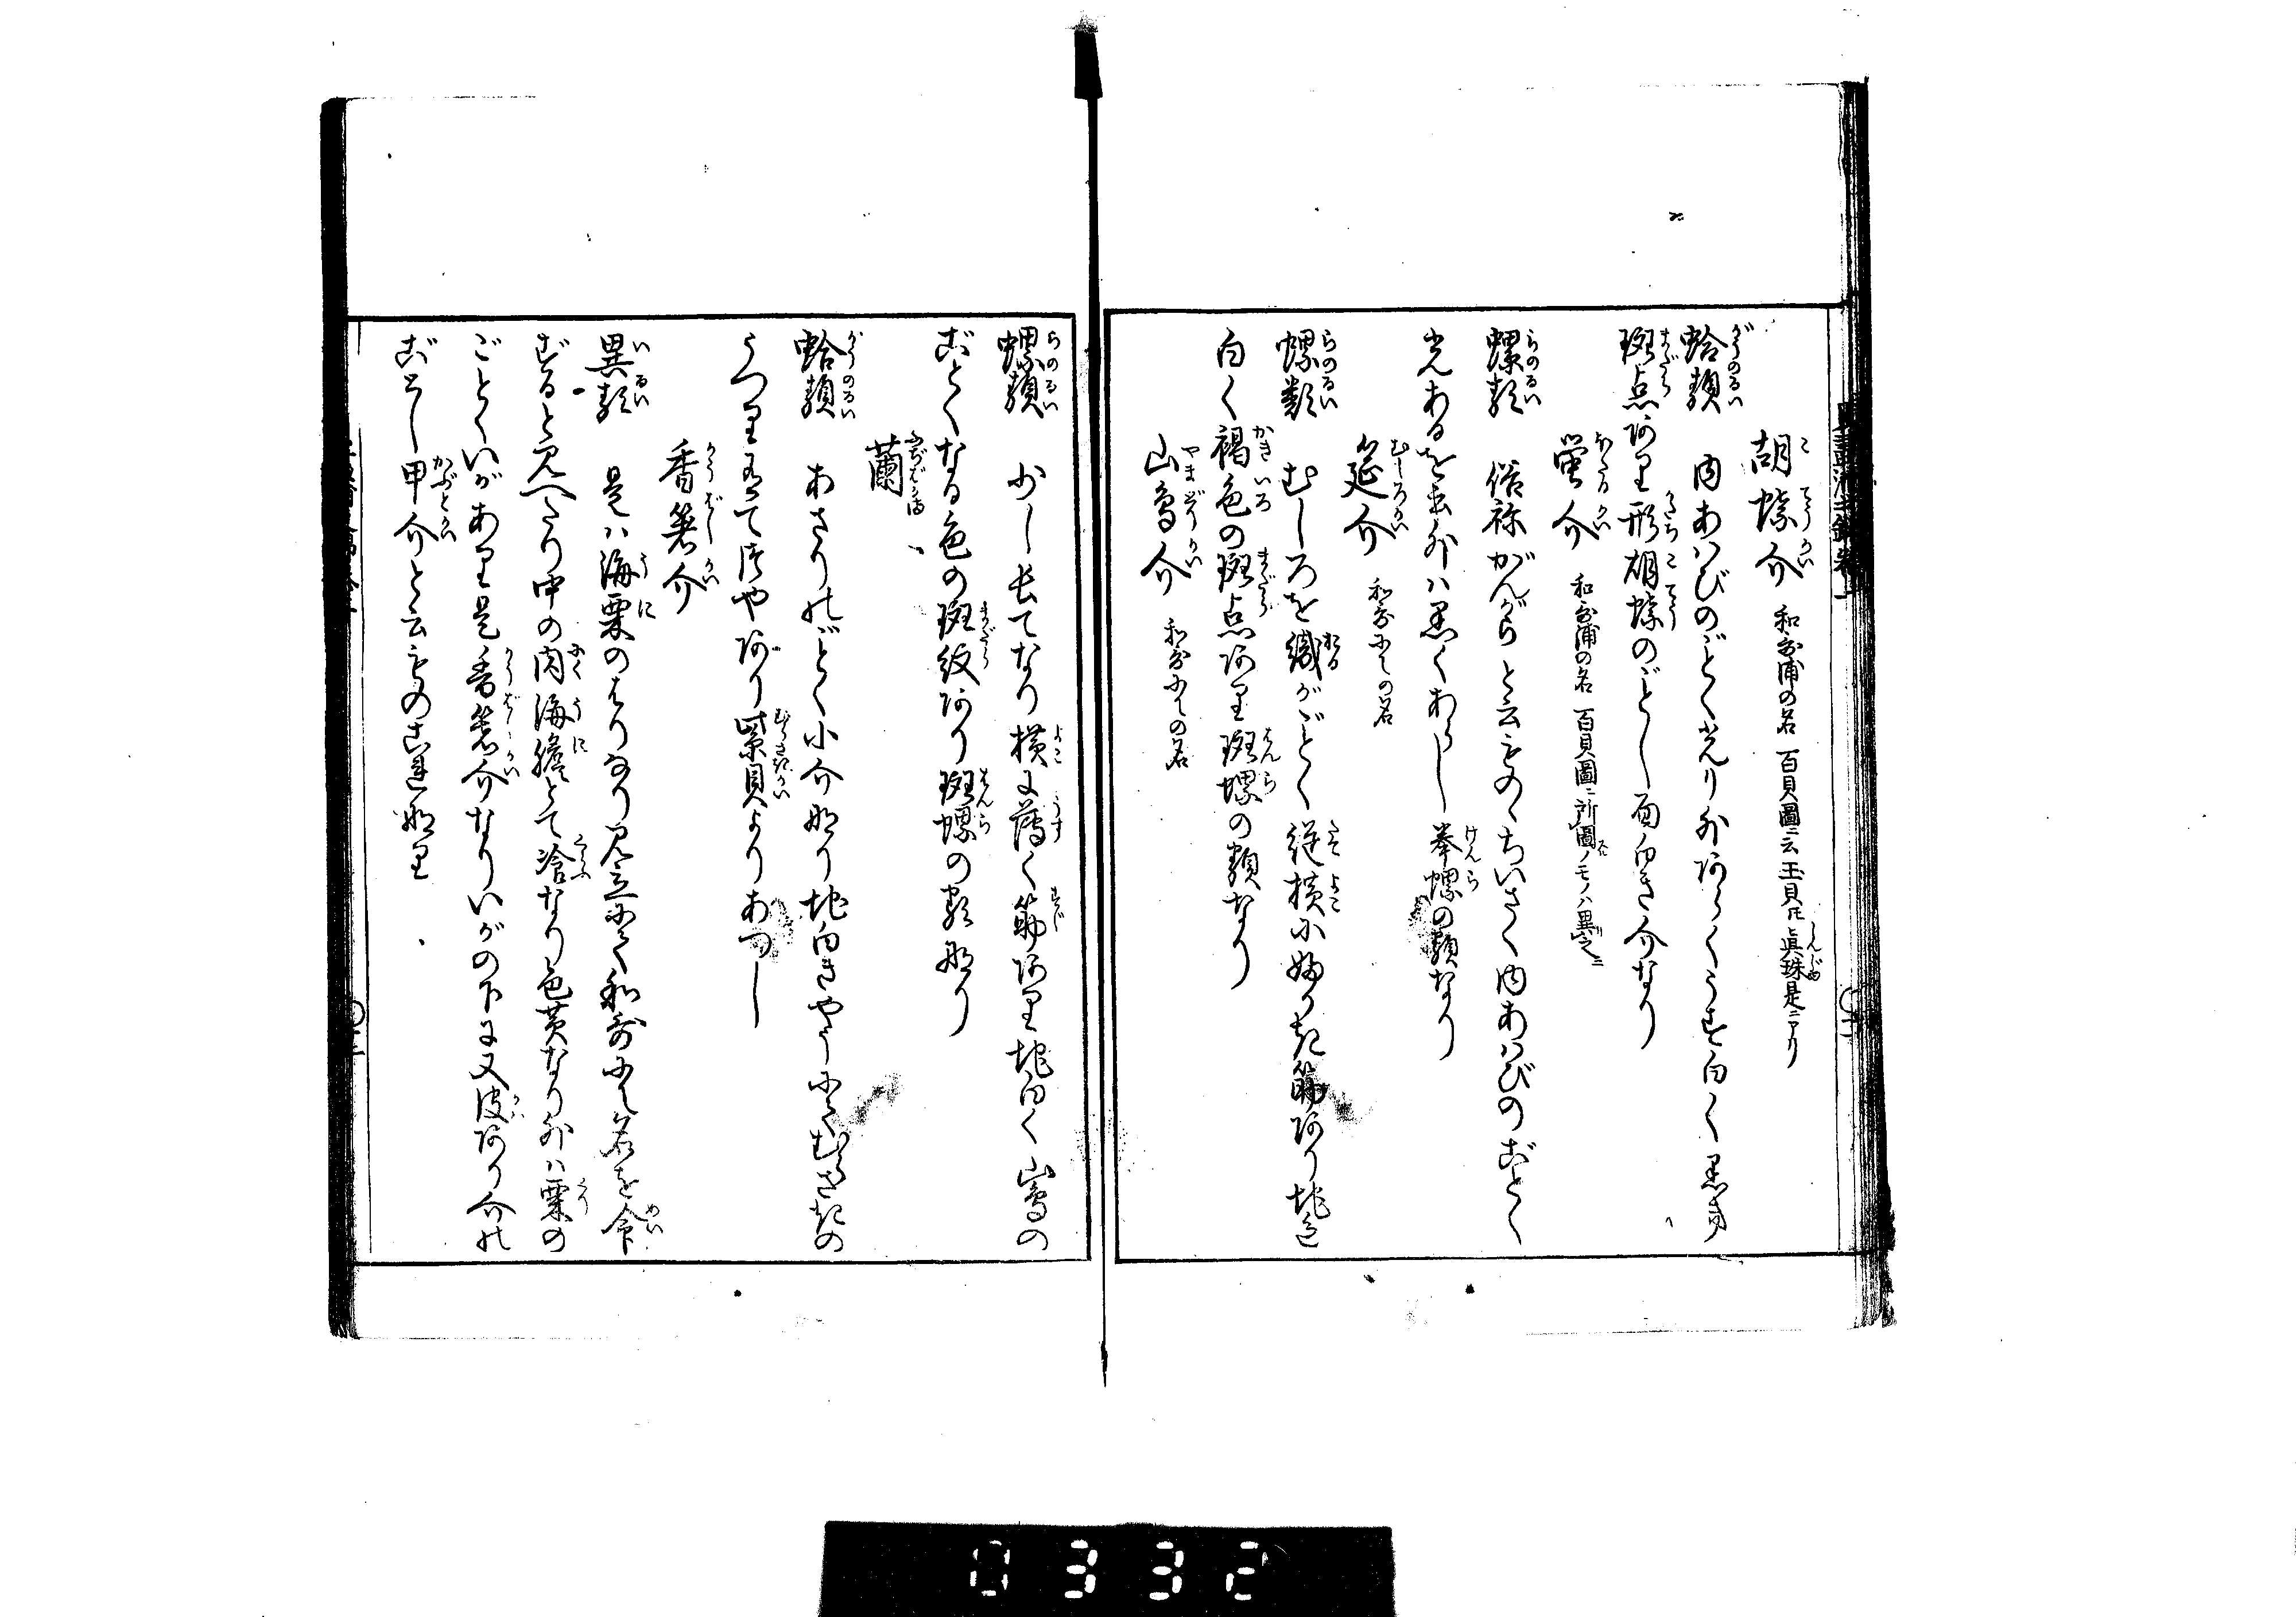 胡蝶介 和哥浦の名 百貝圖ニ云玉貝 眞珠是ニアリ
蛤類 内あハびのごとくえり外アらくうす白く黒き
斑点阿里形胡蝶のごとし面白き介なり
螢介 和哥浦の名 百貝圖ニ所圖ノモノハ異之
螺類 俗称がんがらと云ものゝちいさく内あハびのごとく
光ある也外ハ黒くあらし拳螺の類なり
筵介 和哥にての名
螺類 むしろを織がごとく縦横に婦りた筋阿り地色
白く褐色の斑点阿里斑螺の類なり
山鳥介 和哥にての名
螺類 少し長てなり横に薄く筋阿里地白く山鳥の
ごとくなる色の斑紋阿り斑螺の類なり
蘭
蛤類 あさりのごとく小介なり地白きやうにてむらさきの
うつり有てつや阿り紫貝よりあつし
香箸介
異類 是ハ海栗のはりなり見立にて和哥にて名を命
ずると見へたり中の肉海膽とて なり色黄なり外ハ栗の
ごとくいがあり是香箸介なりいがの下に又皮阿り介の
ごとし甲介と云ものこれなり
0332